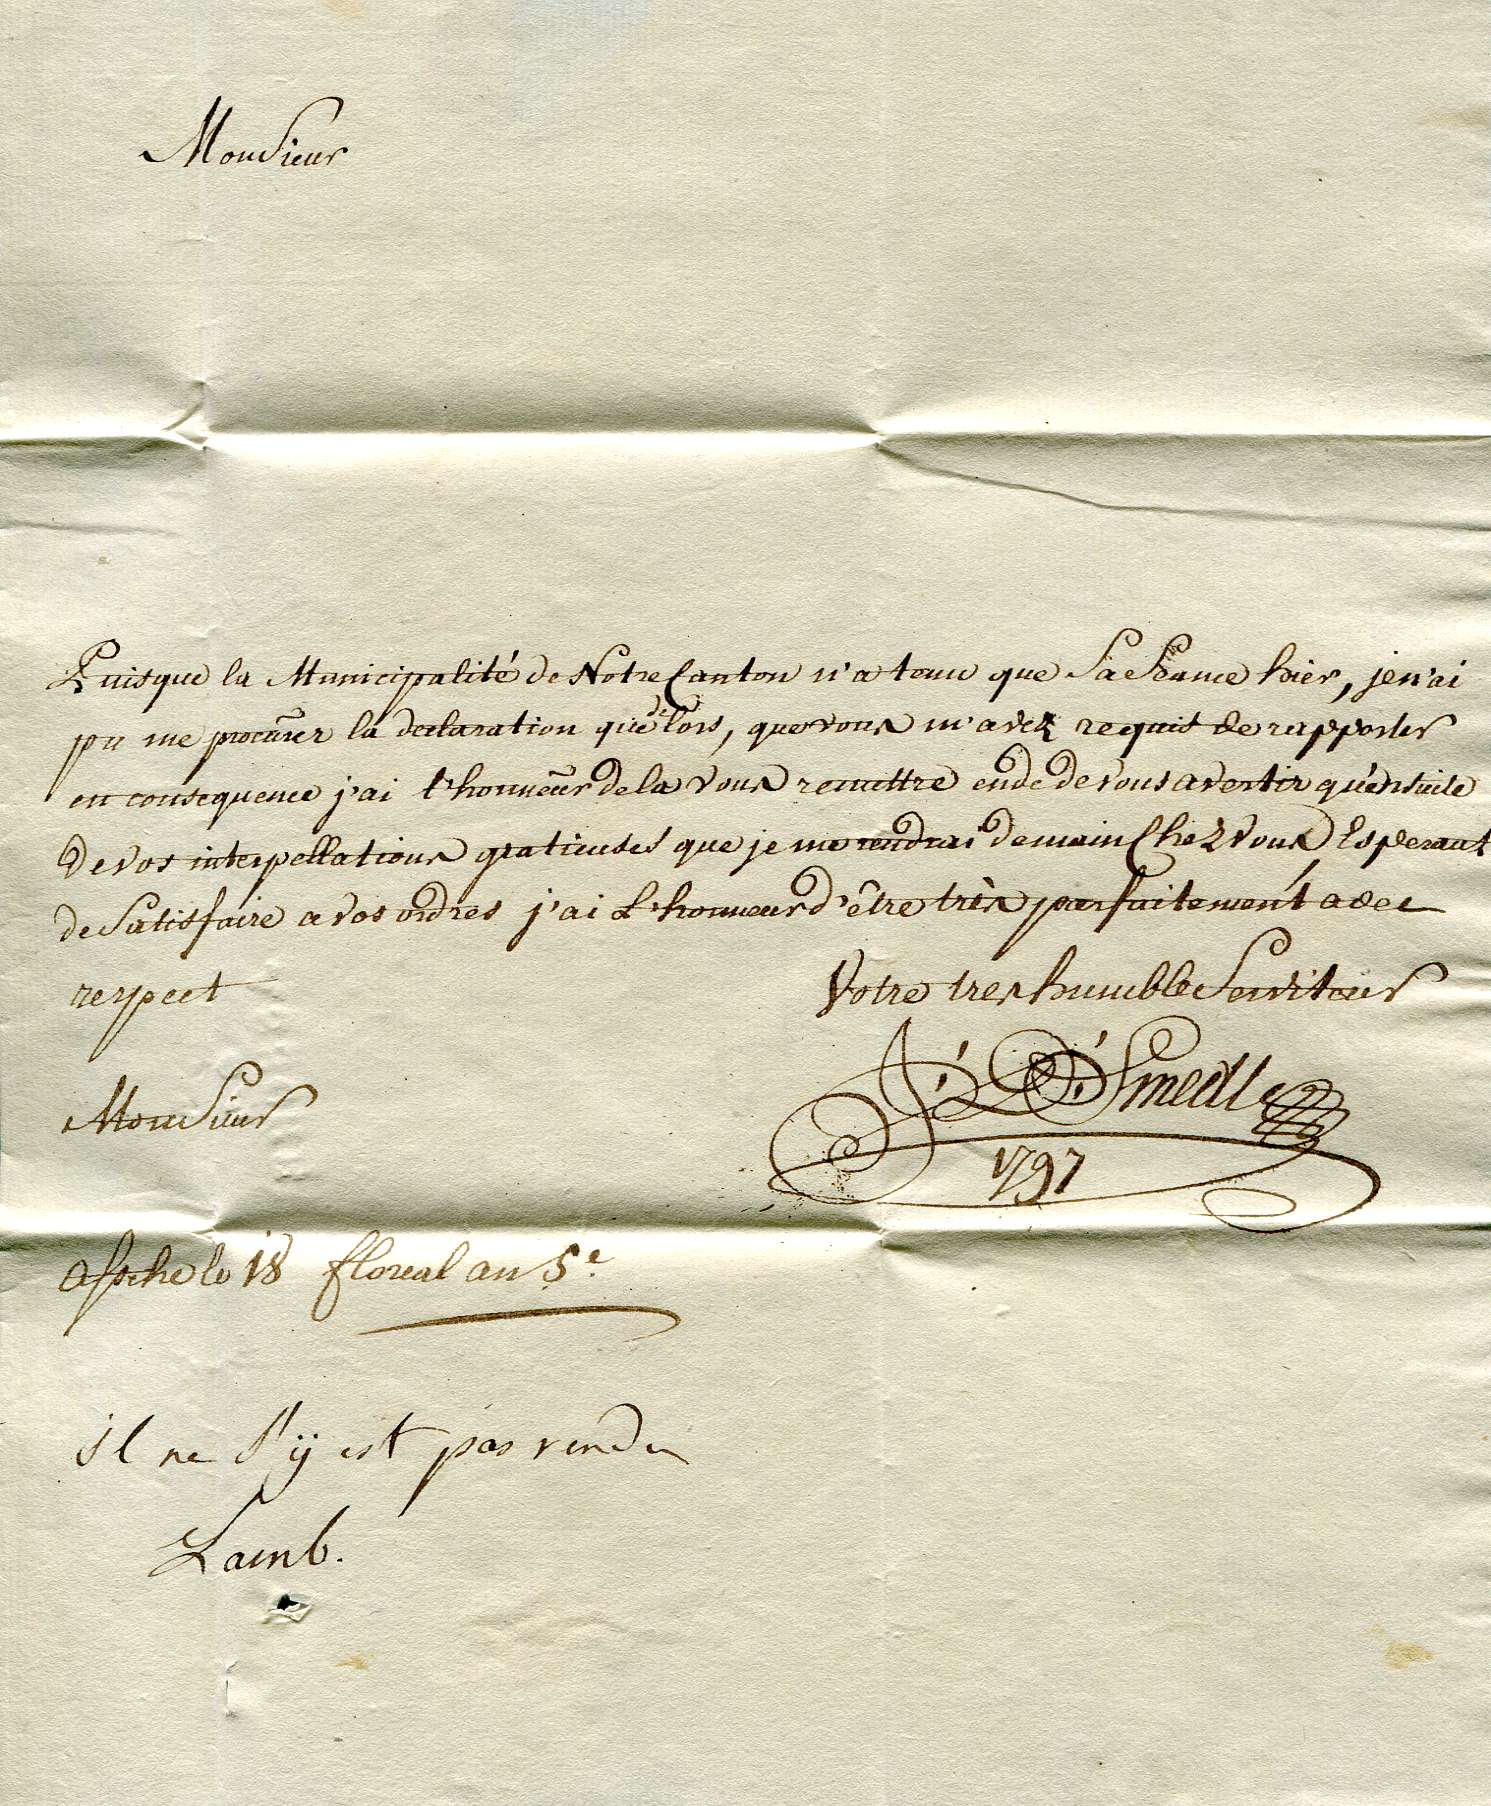 Monsieur
Puisque la Municipalité de Notre Canton n'a tenu que Sa Seance hier, je n'ai
pu me procurer la declaration que de lors, que vous m'avez requit de rapporter
en consequence j'ai l'honneur de la vous remettre en de de vous avertir qu'ensuite
de vos interpellations gratieuses que je me rendrai demain Chez vous Esperant
de Satisfaire a vos ordres j'ai L'honneur d'être très parfaitement avec
respect
Votre tres humble Serviteur
Monsieur
J: D: D: Smedt
1797
assche le 18 floreal an 5e
il ne s'ÿ est pas rendu
Lamb.